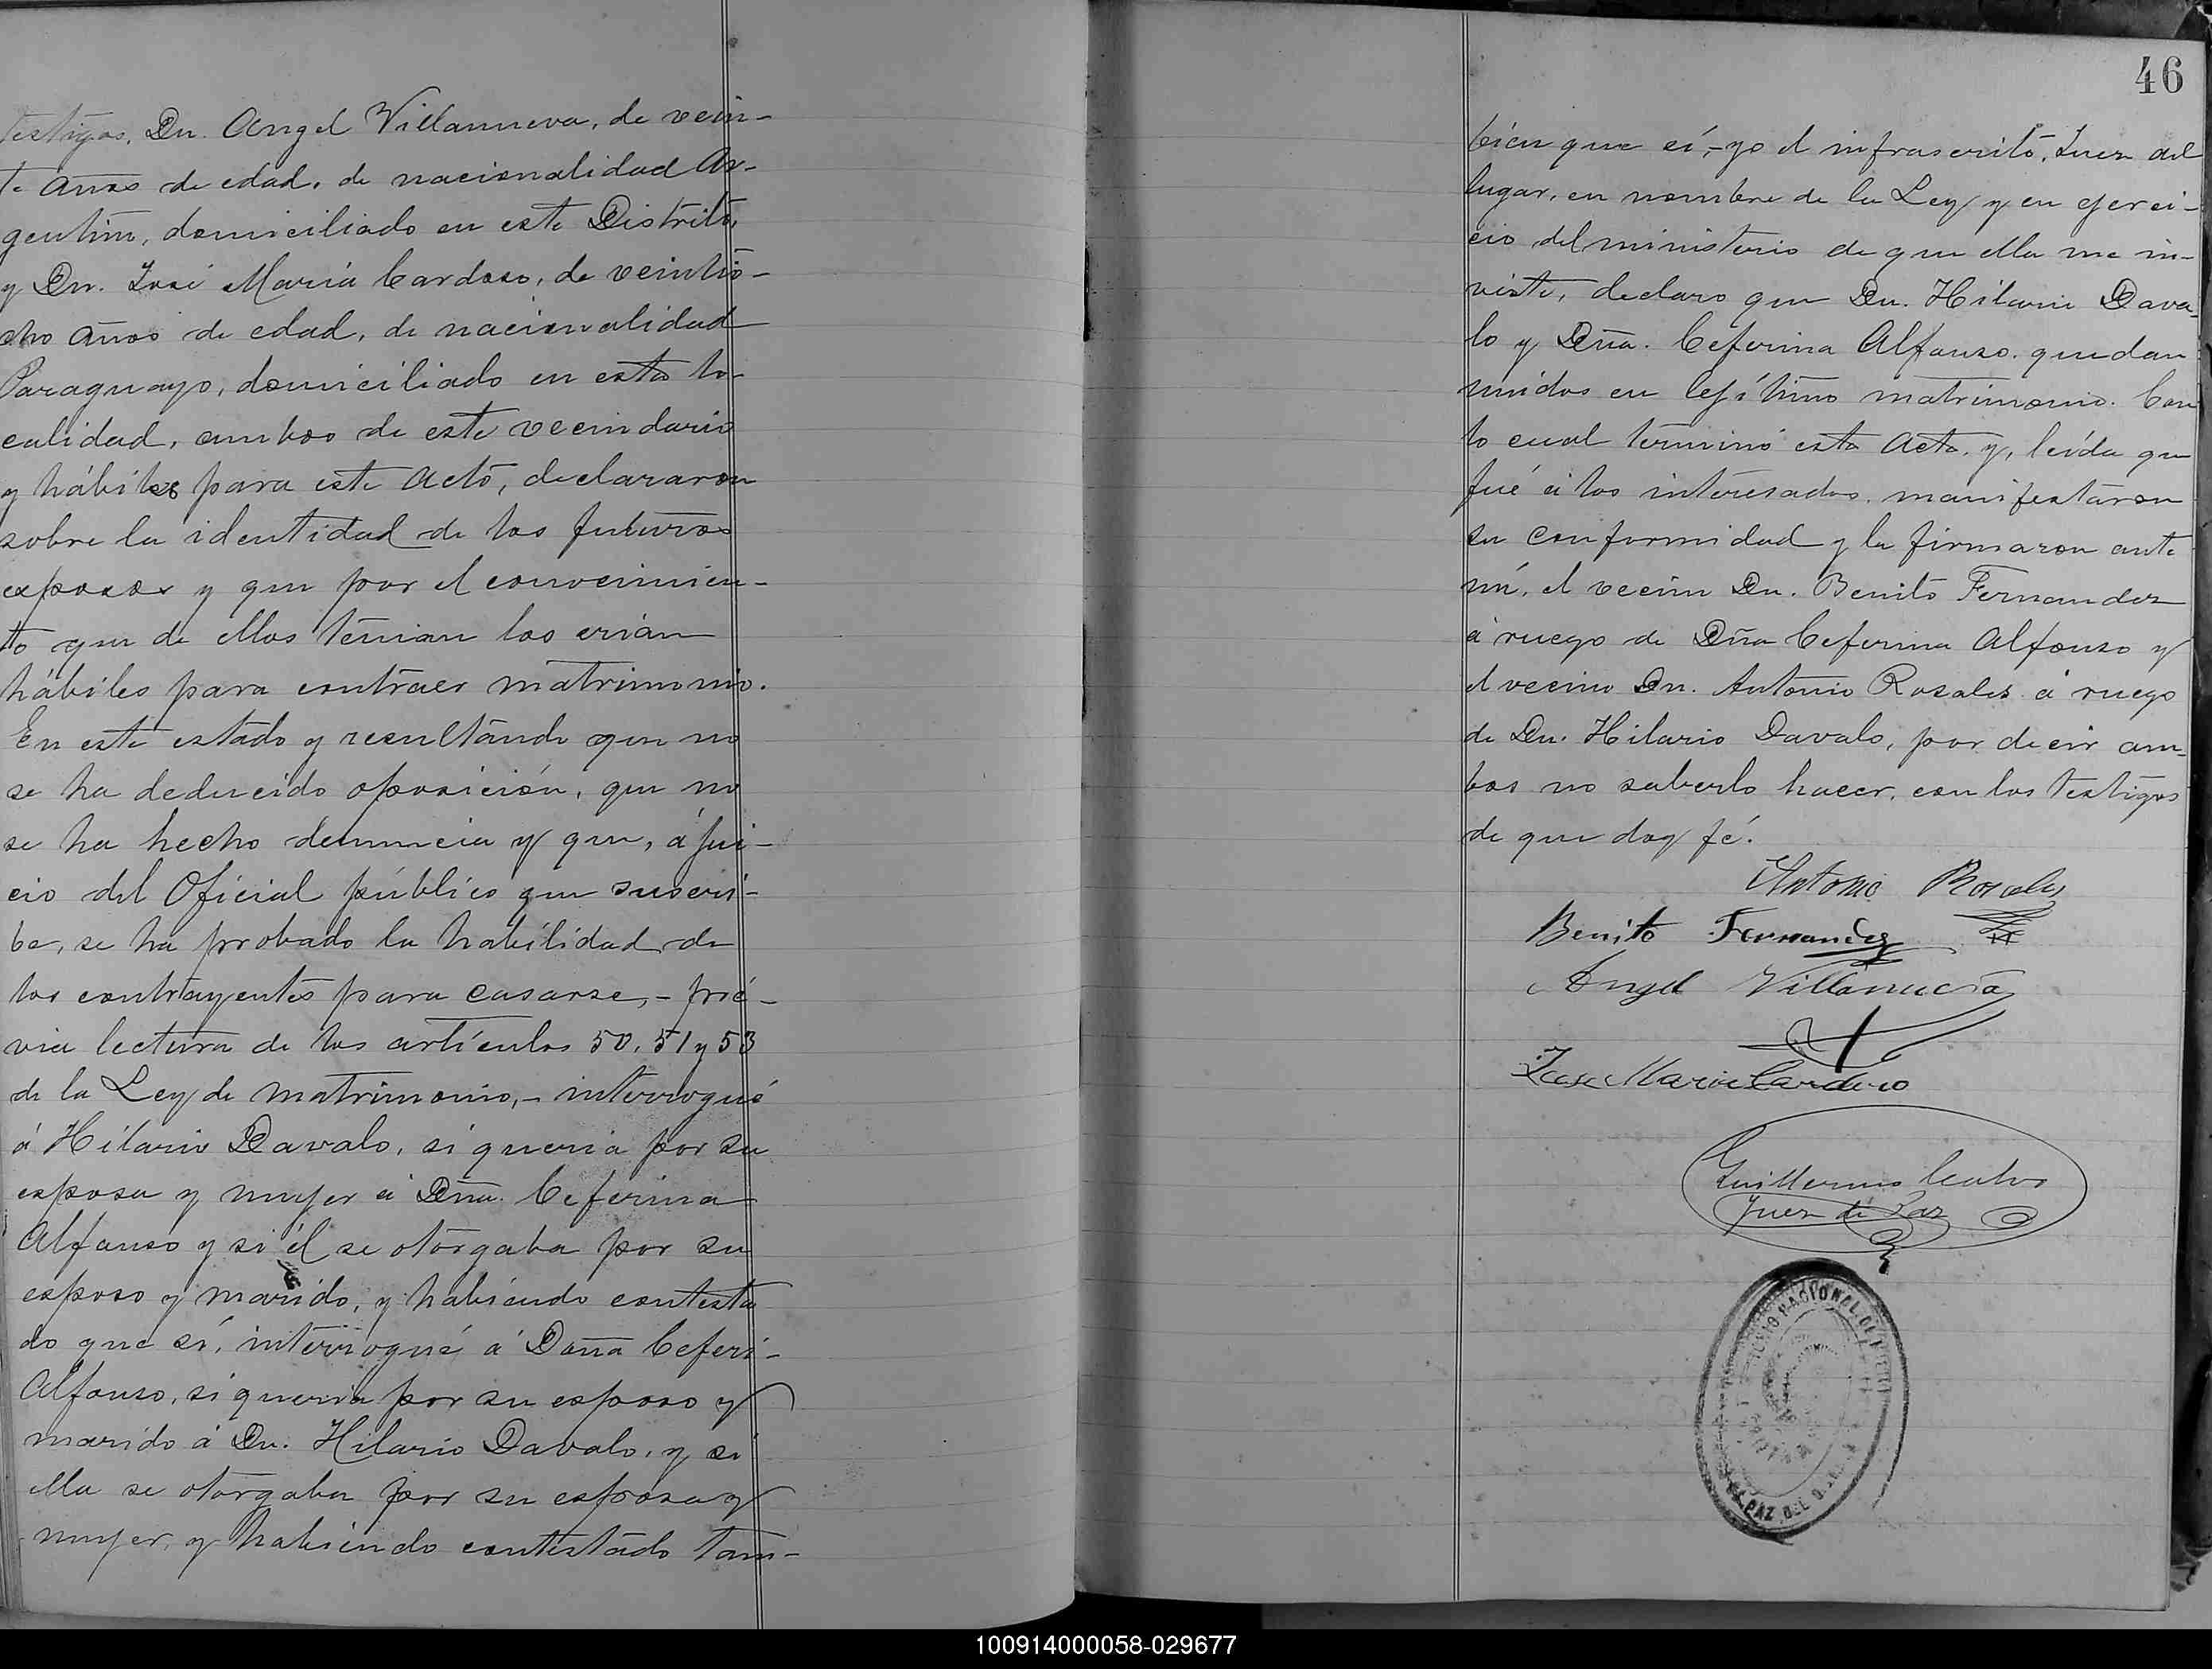 testigos, Dn. Angel Villanueva, de vein-
te años de edad, de nacionalidad Ar-
gentina, domiciliado en este Distrito,
y Dn. José María Cardoso, de veintio-
cho años de edad, de nacionalidad
Paraguayo, domiciliado en esta lo-
calidad, ambos de este vecindario
y hábiles para este acto, declararon
sobre la identidad de los futuros
esposos y que por el conocimien-
to que de ellos tenian los crian
hábiles para contraer matrimonio.
En este estado y resultando que no
se ha deducido oposición, que no
se ha hecho denuncia y que, á jui-
cio del Oficial público que suscri-
be, se ha probado la habilidad de
los contrayentes para casarse,- pré-
via lectura de los artículos 50, 51 y 53
de la Ley de matrimonio,- interrogué
á Hilario Davalo, si queria por su
esposa y mujer á Dña. Ceferina
Alfonso y si él se otorgaba por su
esposo y marido, y habiendo contesta
do que sí, interrogué á Doña Ceferi-
Alfonso, si queria por su esposo y
marido á Dn. Hilario Davalo, y si
ella se otorgaba por su esposa y
mujer, y habiendo contestado tam-
46
bién que sí,- yo el infrascrito, Juez del
lugar, en nombre de la Ley y en ejerci-
cio del ministerio de que ella me in-
viste, declaro que Dn. Hilario Dava-
lo y Dña. Ceferina Alfonso. quedan
unidos en lejítimo matrimonio. Con
lo cual terminó esta acta, y, leída que
fué á los interesados, manifestaron
su conformidad y la firmaron ante
mí, el vecino Dn. Benito Fernandez
á ruego de Dña Ceferina Alfonso y
el vecino Dn. Antonio Rosales á ruego
de Dn. Hilario Davalo, por decir am-
bos no saberlo hacer, con los testigos
de que doy fé.
Antonio Rosales
Benito Fernandez
Angel Villanueva
Jose Maria Cardoso
Guillermo
Juez de Paz
NACIONAL DE
PAZ DEL
100914000058-029677